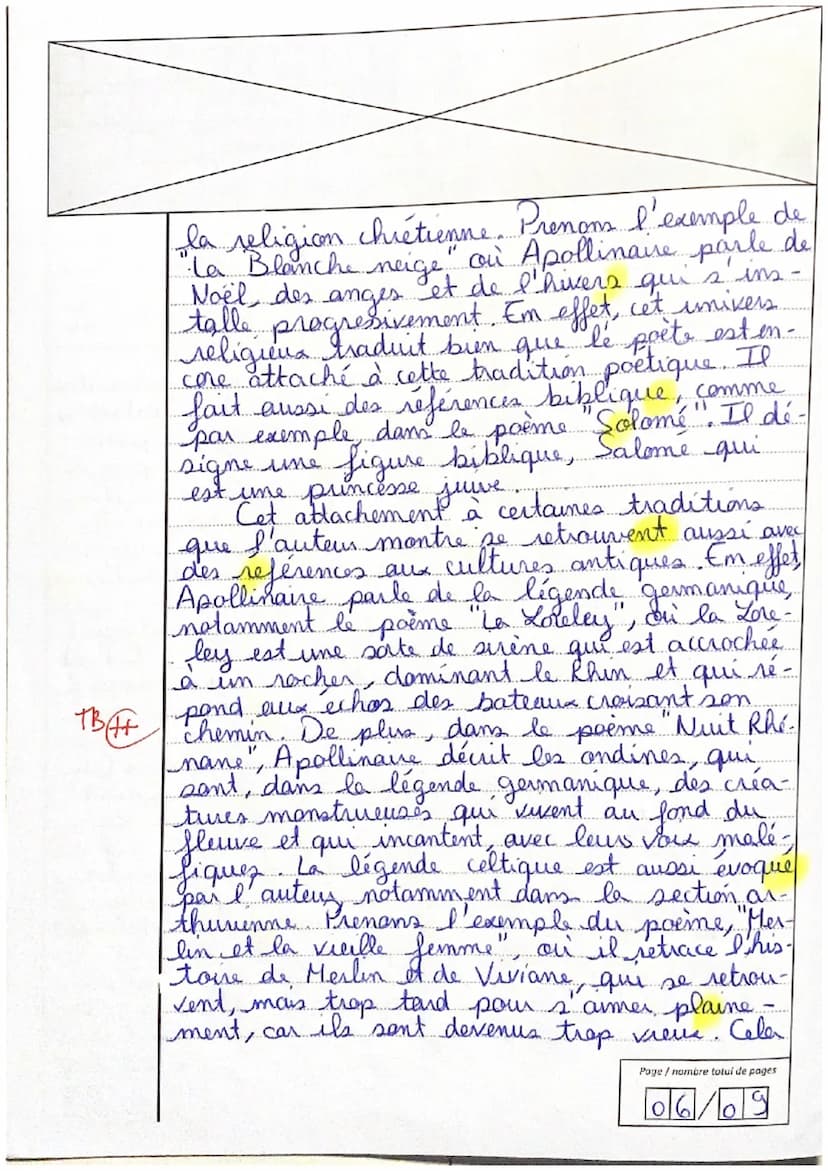 la religion chrétienne. Prenons l'exemple de
"La Blanche neige" où Apollinaire parle de
Noël, des anges et de l'hivers qui s'ins-
talle progressivement. En effet, cet univers
religieux traduit bien que le poète est en-
core attaché à cette tradition poétique. Il
fait aussi des références biblique, comme
par exemple, dans le poème "Solomé". Il dé-
signe une figure biblique, Salomé qui
est une princesse juive.
Cet attachement à certaines traditions
que l'auteur montre se retrouvent aussi avec
des references aux cultures antiques. En effet,
Apollinaire parle de la légende germanique,
notamment le poème "La Loreley", où la Lore-
ley est une sorte de sirène qui est accrochée
à un rocher, dominant le Rhin et qui ré-
pond aux échos des bateaux croisant son
TB ++
chemin. De plus, dans le poème "Nuit Rhé-
nane", Apollinaire décrit les ondines, qui
sont, dans la légende germanique, des créa-
tures monstrueuses qui vivent au fond du
fleuve et qui incantent, avec leurs voix malé-
fiques. La légende celtique est aussi évoqué
par l'auteur, notamment dans la section ar-
thurienne. Prenons l'exemple du poème, "Mer-
lin et la vieille femme", où il retrace l'his-
toire de Merlin et de Viviane, qui se retrou-
vent, mais trop tard pour s'aimer plaine-
ment, car ils sont devenus trop vieux. Cela
Page / nombre total de pages
06/09